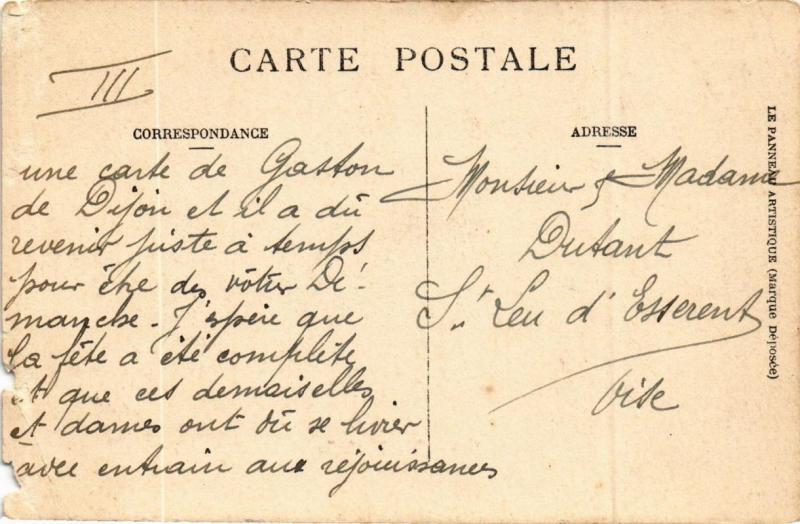 CARTE POSTALE
III
CORRESPONDANCE
une carte de Gaston
de Dijon et il a dû
revenir juste à temps
pour être des vôtres Di-
manche. J'espère que
la fête a été complète
et que ces demoiselles
et dames ont dû se livrer
avec entrain aux réjouissances
ADRESSE
Monsieur & Madame
Dutant
St Leu d'Esserent
Oise
LE PANNEAU ARTISTIQUE (Marque Déposée)